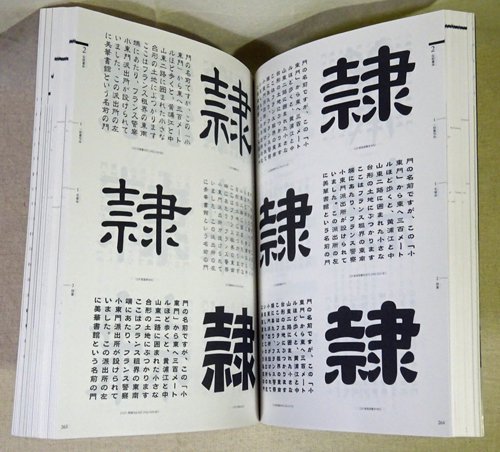 隷
門の名前ですが、この「小
東門」から東へ三百メート
ルほど歩くと、黄浦江と中
山東二路に囲まれた小さな
台形の土地にぶつかります
ここはフランス租界の東南
端にあたり、フランス警察
小東門派出所が設けられて
いました。この派出所の左
に美華書館という名前の門
門の名前ですが、この「小
東門」から東へ三百メート
ルほど歩くと、黄浦江と中
山東二路に囲まれた小さな
台形の土地にぶつかります
ここはフランス租界の東南
端にあたり、フランス警察
小東門派出所が設けられて
いました。この派出所の左
に美華書館という名前の門
隷
隷
門の名前ですが、この「小
東門」から東へ三百メート
ルほど歩くと、黄浦江と中
山東二路に囲まれた小さな
台形の土地にぶつかります
ここはフランス租界の東南
端にあたり、フランス警察
264
隷
門の名前ですが、この「小
東門」から東へ三百メート
ルほど歩くと、黄浦江と中
山東二路に囲まれた小さな
台形の土地にぶつかります
ここはフランス租界の東南
端にあたり、フランス警察
小東門派出所が設けられて
いました。この派出所の左
に美華書館という名前の門
門の名前ですが、この「小
東門」から東へ三百メート
ルほど歩くと、黄浦江と中
山東二路に囲まれた小さな
台形の土地にぶつかります
ここはフランス租界の東南
端にあたり、フランス警察
小東門派出所が設けられて
いました。この派出所の左
に美華書館という名前の門
隷
隷
門の名前ですが、この「小
東門」から東へ三百メート
ルほど歩くと、黄浦江と中
山東二路に囲まれた小さな
台形の土地にぶつかります
ここはフランス租界の東南
端にあたり、フランス警察
小東門派出所が設けられて
いました。この派出所の左
に美華書館という名前の門
265